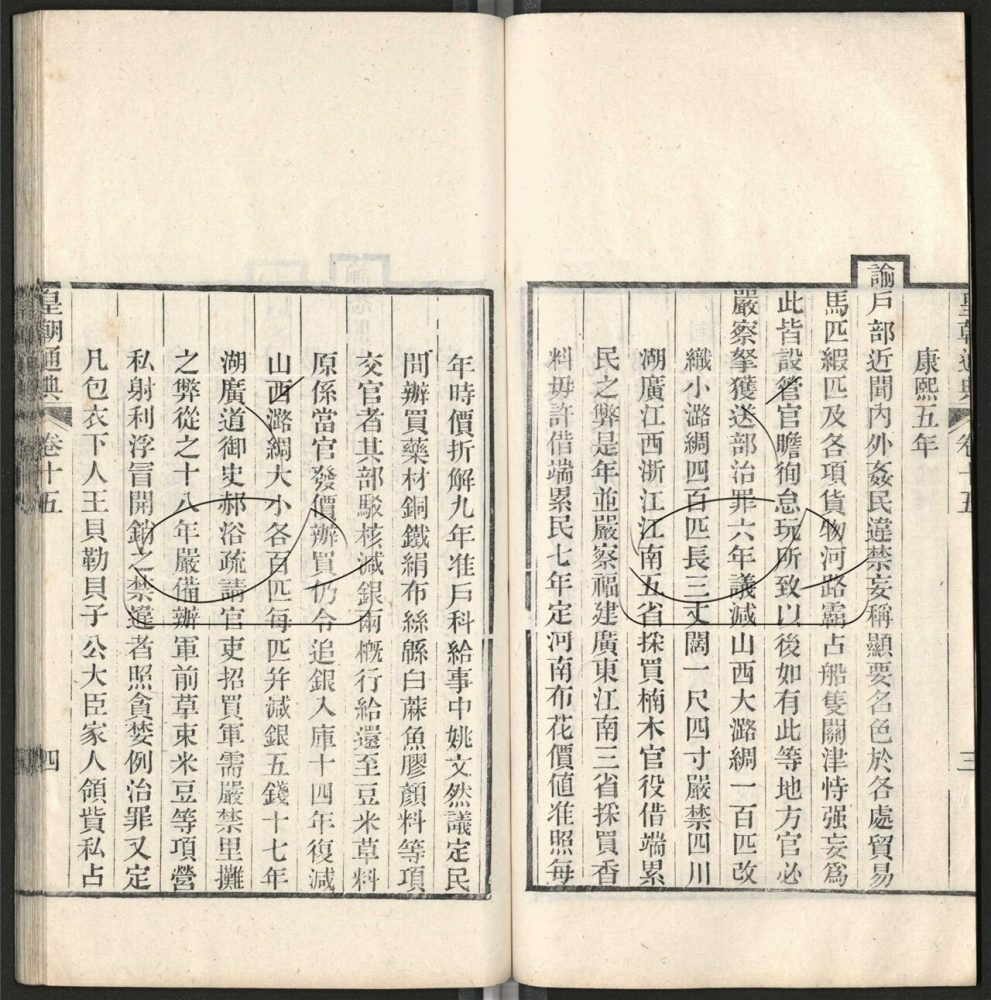 皇朝通典 卷十五 三
康熙五年
諭戶部近聞內外姦民違禁妄稱顯要名色於各處貿易
馬匹緞匹及各項貨物河路霸占船隻關津恃强妄爲
此皆設管官瞻徇怠玩所致以後如有此等地方官必
嚴察拏獲送部治罪六年議減山西大潞綢一百匹改
織小潞綢四百匹長三丈闊一尺四寸嚴禁四川
湖廣江西浙江江南五省採買楠木官役借端累
民之弊是年並嚴察福建廣東江南三省採買香
料毋許借端累民七年定河南布花價値准照每
年時價折解九年准戶科給事中姚文然議定民
間辦買藥材銅鐵絹布絲緜白蔴魚膠顏料等項
交官者其部駁核減銀兩槪行給還至豆米草料
原係當官發價辦買仍令追銀入庫十四年復減
山西潞綢大小各百匹每匹幷減銀五錢十七年
湖廣道御史郝浴疏請官吏招買軍需嚴禁里攤
之弊從之十八年嚴備辦軍前草束米豆等項營
私射利浮冒開銷之禁違者照貪婪例治罪又定
凡包衣下人王貝勒貝子公大臣家人領貲私占
皇朝通典 卷十五 四